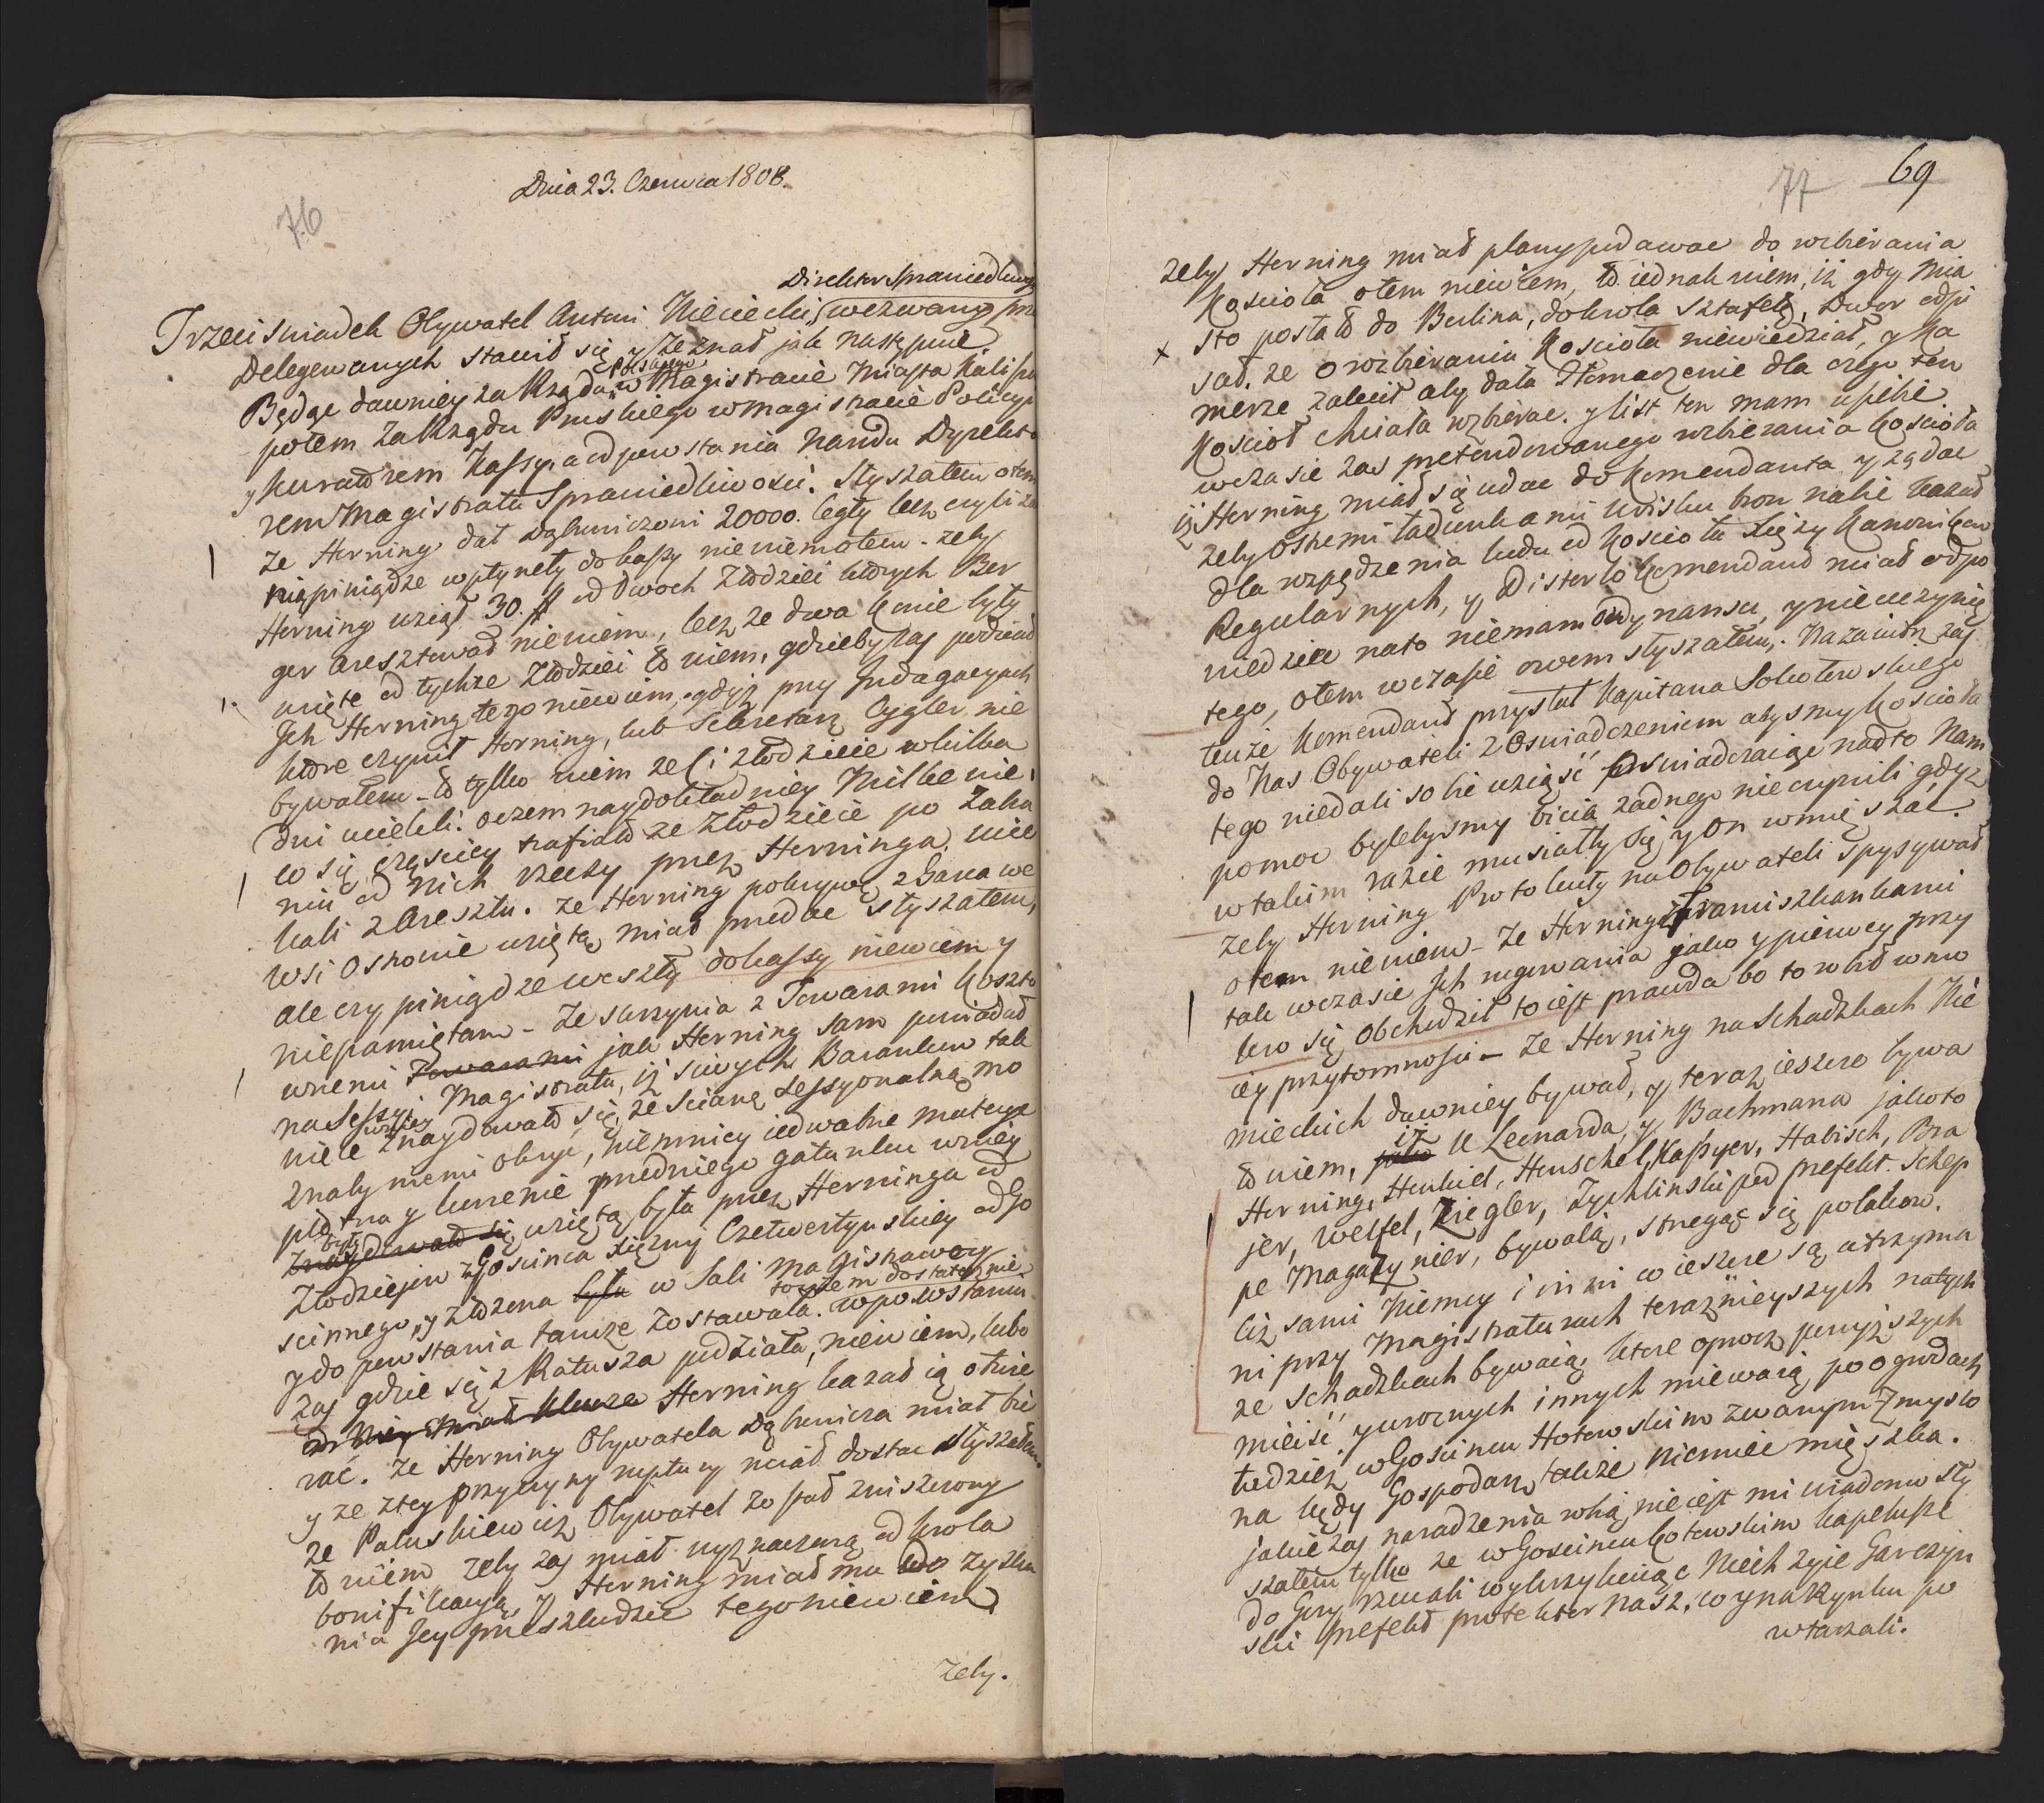 Dnia 23. Czerwca 1808.
76
Direktor Sprawiedliwos
Trzeci Swiadek Obywatel Antoni Kieiecki, wezwany prz
Delegowanych stawił się y zeznał jak następuie
Polskiego
Będąc dawniey za Rządu w Magistracie Miasta Kalisza
potem za Rządu Pruskiego w magistracie Policyi
y Kuratorem Kassy, a od powstania Narodu Dyrekto
rem Magistratu Sprawiedliwosci. Słyszałem otem
że Herning dał Dąbniczoni 20000. Cegły lecz czyli za
nią piniądze wpłynęły do kassy nie wiem otem - żeby
Herning wziął 30. # od dwoch Złodziei ktorych Ber
ger aresztował nie wiem, lecz że dwa konie były
wzięte od tychże Złodziei to wiem, gdzieby zaś podział
Jch Herning tego niewiem, gdyż przy Jndagacyach
ktore czynił Herning, lub Sekretarz Cygler, nie
bywałem - to tylko wiem że ci złodzieie w kilka
dni uciekli: oczem naydokładniey Milbe wie,
co się częściey trafiało że Złodzieie po zabra
niu od nich rzeczy przez Herninga, ucie
kali z Aresztu. że Herning pokrywę z Garca we
wsi Oskowie wziętą miał przedac słyszałem,
ale czy piniądze weszły do kassy niewiem y
niepamiętam - że skrzynia z Towarami koszto
wnemi Towarami jak Herning sam powiadał
na Sessyi Magistratu, iż siwych Barankow tak
w niey
wiele znaydowało się, że scianę Sessyonalną mo
znaby niemi obiyć, niemniey iedwabne materye
płotna y korzenie przedniego gatunku w niey
były
znaydowało się, wzięta była przez Herninga od
Złodzieiow z Goscinca Xiężny Czetwertynskiey od Go
scinnego, y złożona była w Sali Magistrackiey
to wiem dostatecznie
y do powstania tamże zostawała. w powstaniu
zaś gdzie się z Ratusza podziała, niewiem, lubo
od niey miał klucze Herning kazał ią otwie
rać. że Herning Obywatela Dąbnicza miał bić
y ze ztey przyczyny ruptury miał dostac słyszałem.
że Paluskiewicz Obywatel został zniszczony
to wiem żeby zaś miał wyznaczoną od krola
bonifikacyą, y Herning miał mu do zyska
nia Jey przeszkodzic tego niewiem
żeby.
77 69
żeby Herning miał plany podawac do rozbierania
Kościoła otem niewiem, to iednak wiem, iż gdy Mia
sto posłało do Berlina, do krola Sztafetę, Dwor odpi
sał. że o rozbieraniu Kościoła niewiedział, y Ka
merze zalecił aby dała tłomaczenie dla czego ten
Kościoł chciała rozbierac. y list ten mam u siebie
w czasie zaś pretendowanego rozbierania Kościoła
iż Herning miał się udac do Komendanta y żądac
żeby Ostremi ładunkami Woisku bron nabic kazał
dla rozpędzenia ludu od Kościoła Xięży Kanonikow
Regularnych, y Disterlo Komendant miał odpo
wiedziec na to niemam ordynansu, y nie uczynię
tego, otem w czasie owem słyszałem; Nazaiutrz zaś
tenże Komendant przysłał Kapitana Sokołowskiego
do Nas Obywateli z Oswiadczeniem abysmy Kościoła
tego niedali sobie wziąść oswiadczaiąc nadto Nam
pomoc bylebysmy bicia żadnego nie czynili gdyż
w takim razie musiałby się y On wmięszać.
żeby Herning Protokuły na Obywateli spysywał
otem niewiem - że Herning z Franciszkankami
tak w czasie Jch rugowania jako y pierwey przy
kro się obchodził to iest prawda bo to robił w mo
iey przytomnosci - że Herning na Schadzkach Nie
mieckich dawniey bywał, y teraz ieszcze bywa
to wiem, jako iż u Leonarda y Bachmana jakoto
Herning, Henkiel, Henschel, Kassyer, Habisch, Bra
jer, Welfel, Ziegler, Zychlinski pod prefekt. Schep
pe Magazynier, bywaią, strzegąc się polakow.
liż sami Niemcy i inni co ieszcze są utrzyma
ni przy Magistraturach teraznieyszych natych
ze Schadzkach bywaią, ktore oprocz powyższych
mieisc y urocznych innych miewaią po ogrodach
tudzież w Goscincu Hotewskim zwanym Zmyslo
na kędy Gospodarz także Niemiec mięszka.
jakie zaś naradzenia robią, nie iest mi wiadomo sły
szałem tylko że w Goscincu Kotowskim kapelusze
do Gory rzucali wykrzykuiąc Niech żyie Garczyn
ski prefekt protektor nasz, co y na Rynku po
wtarzali.